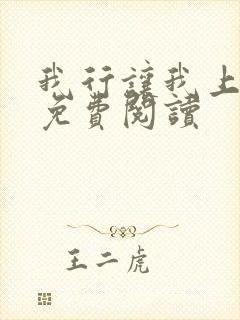 我行讓我上
免費閱讀
王二虎